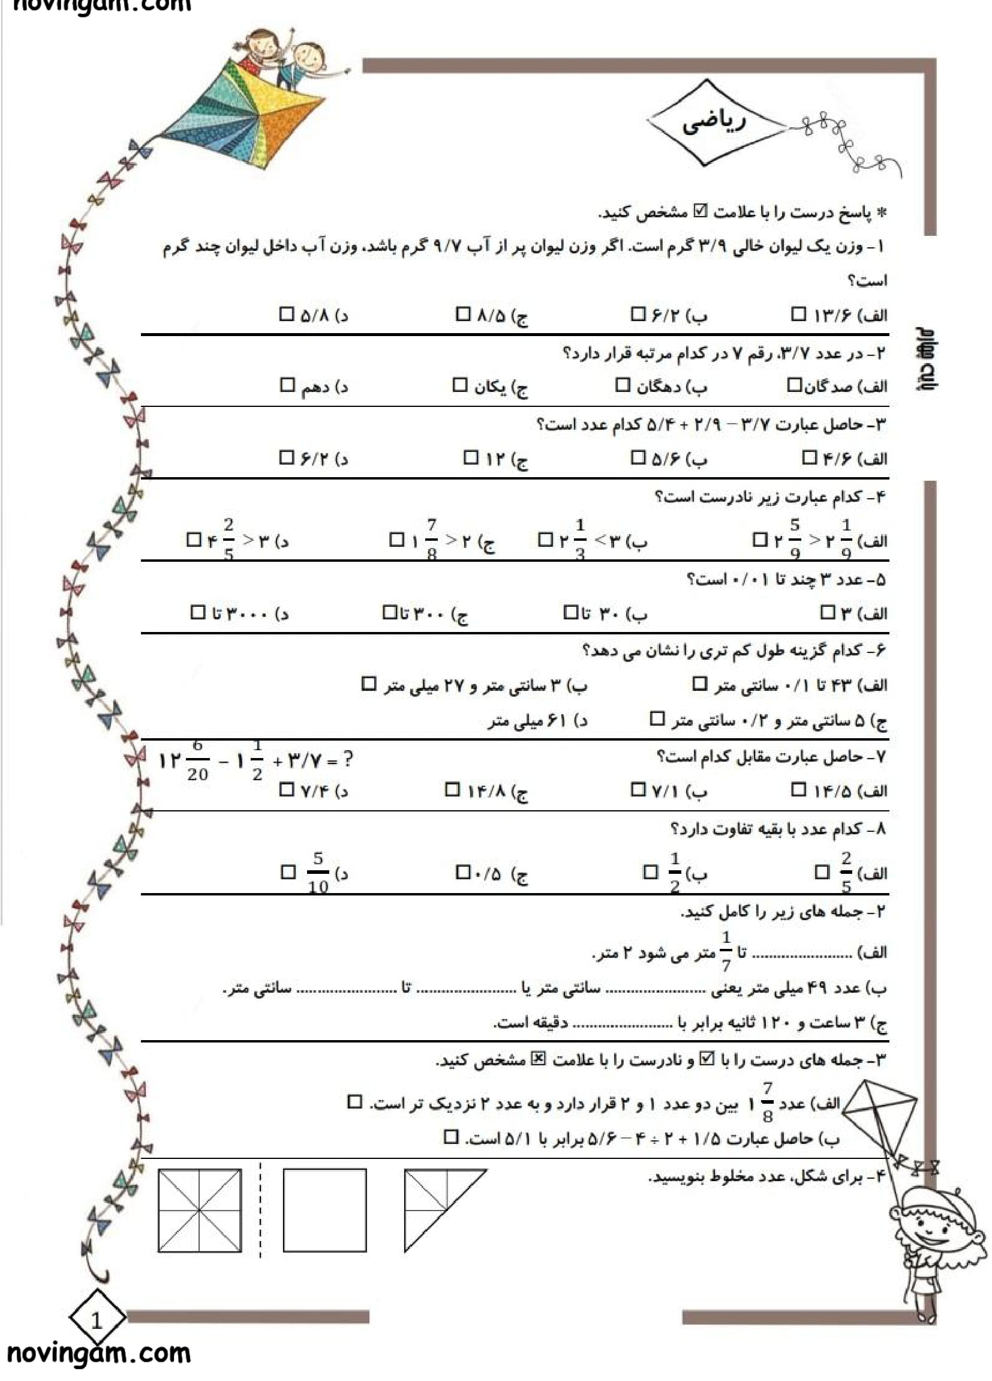 novingam.com
ریاضی
* پاسخ درست را با علامت ☑ مشخص کنید.
۱- وزن یک لیوان خالی ۳/۹ گرم است. اگر وزن لیوان پر از آب ۹/۷ گرم باشد، وزن آب داخل لیوان چند گرم
است؟
الف) ۱۳/۶ □ ب) ۶/۲ □ ج) ۸/۵ □ د) ۵/۸ □
۲- در عدد ۳/۷، رقم ۷ در کدام مرتبه قرار دارد؟
الف) صدگان □ ب) دهگان □ ج) یکان □ د) دهم □
۳- حاصل عبارت ۳/۷ − ۲/۹ + ۵/۴ کدام عدد است؟
الف) ۴/۶ □ ب) ۵/۶ □ ج) ۱۲ □ د) ۶/۲ □
۴- کدام عبارت زیر نادرست است؟
الف) ۲ 5/9 > ۲ 1/9 □ ب) ۲ 1/3 < ۳ □ ج) ۱ 7/8 > ۲ □ د) ۴ 2/5 > ۳ □
۵- عدد ۳ چند تا ۰/۰۱ است؟
الف) ۳ □ ب) ۳۰ تا □ ج) ۳۰۰ تا □ د) ۳۰۰۰ تا □
۶- کدام گزینه طول کم تری را نشان می دهد؟
الف) ۴۳ تا ۰/۱ سانتی متر □ ب) ۳ سانتی متر و ۲۷ میلی متر □
ج) ۵ سانتی متر و ۰/۲ سانتی متر □ د) ۶۱ میلی متر
۷- حاصل عبارت مقابل کدام است؟ ۱۲ 6/20 − ۱ 1/2 + ۳/۷ = ?
الف) ۱۴/۵ □ ب) ۷/۱ □ ج) ۱۴/۸ □ د) ۷/۴ □
۸- کدام عدد با بقیه تفاوت دارد؟
الف) 2/5 □ ب) 1/2 □ ج) ۰/۵ □ د) 5/10 □
۲- جمله های زیر را کامل کنید.
الف) ........................ تا 1/7 متر می شود ۲ متر.
ب) عدد ۴۹ میلی متر یعنی ........................ سانتی متر یا ........................ تا ........................ سانتی متر.
ج) ۳ ساعت و ۱۲۰ ثانیه برابر با ........................ دقیقه است.
۳- جمله های درست را با ☑ و نادرست را با علامت ☒ مشخص کنید.
الف) عدد ۱ 7/8 بین دو عدد ۱ و ۲ قرار دارد و به عدد ۲ نزدیک تر است. □
ب) حاصل عبارت ۱/۵ + ۲ ÷ ۴ − ۵/۶ برابر با ۵/۱ است. □
۴- برای شکل، عدد مخلوط بنویسید.
1
novingam.com